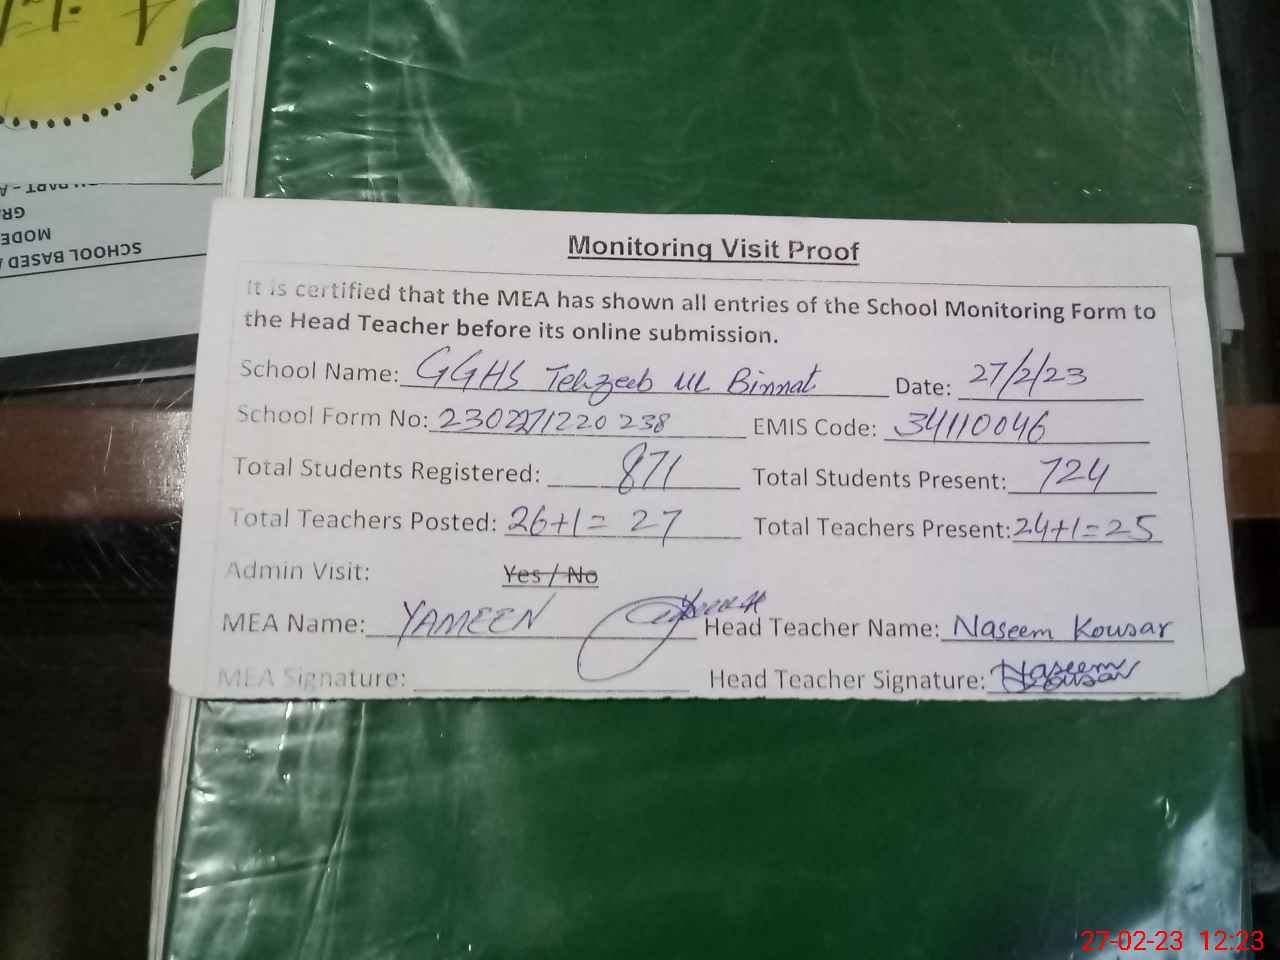 SCHOOL BASED
MODE
GR
PART - A
Monitoring Visit Proof
It is certified that the MEA has shown all entries of the School Monitoring Form to
the Head Teacher before its online submission.
School Name: GGHS Tehzeeb Ul Binnat Date: 27/2/23
School Form No: EMIS Code: 34110046
Total Students Registered: 871 Total Students Present: 724
Total Teachers Posted: 26+1= 27 Total Teachers Present: 24+1=25
Admin Visit: Yes / No
MEA Name: YAMEEN Head Teacher Name: Naseem Kousar
MEA Signature: Head Teacher Signature: Naseem Kousar
27-02-23 12:23